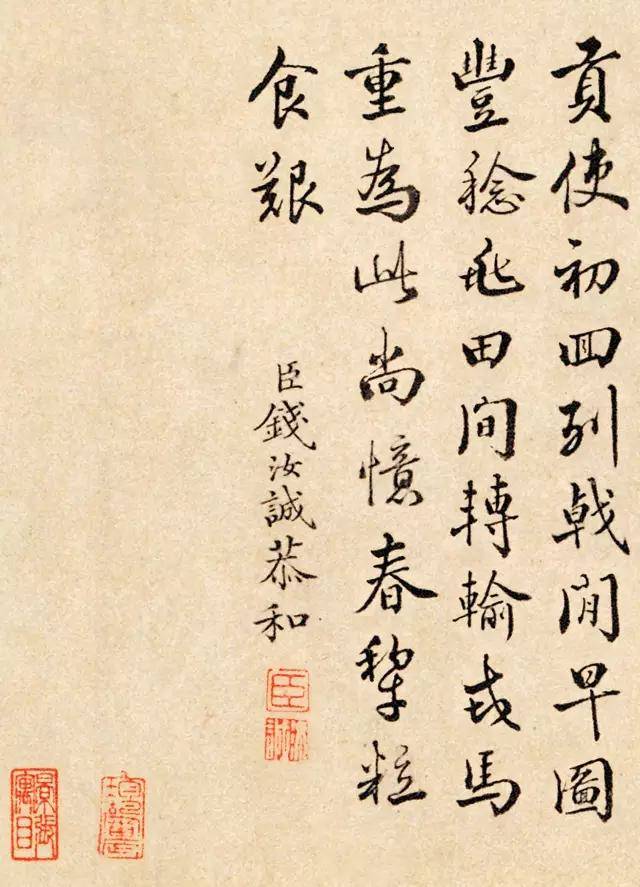 貢使初囬列戟閒早圖
豐稔田間轉輸戎馬
重為此尚憶春犁粒
食艱
臣錢汝誠恭和
臣